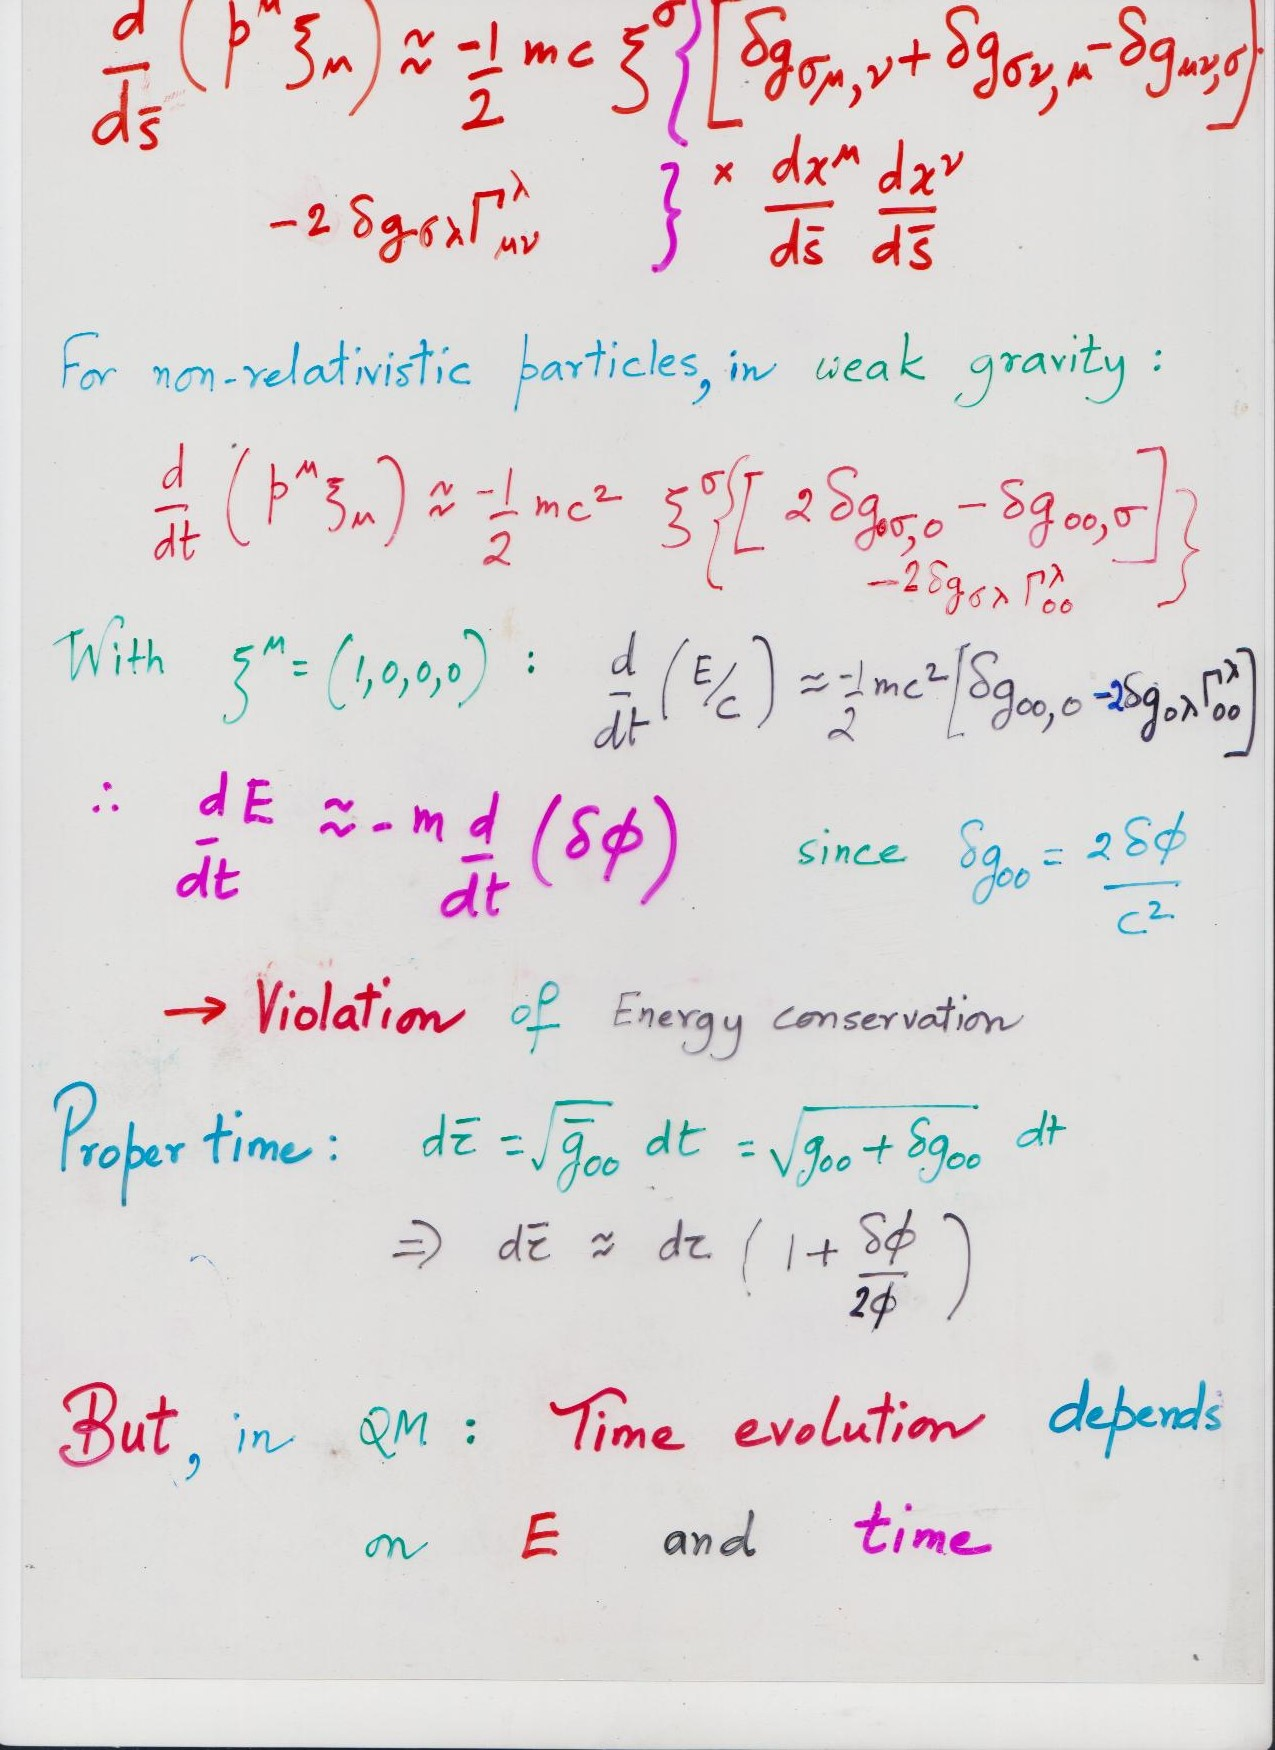 d/ds̄ (p^μ ξ_μ) ≈ -1/2 mc ξ^σ { [δg_σμ,ν + δg_σν,μ - δg_μν,σ]
-2 δg_σλ Γ^λ_μν } × dx^μ/ds̄ dx^ν/ds̄
For non-relativistic particles, in weak gravity :
d/dt (p^μ ξ_μ) ≈ -1/2 mc² ξ^σ { [ 2 δg_0σ,0 - δg_00,σ ]
-2δg_σλ Γ^λ_00 }
With ξ^μ = (1,0,0,0) : d/dt (E/c) ≈ -1/2 mc² [δg_00,0 -2δg_0λ Γ^λ_00]
∴ dE/dt ≈ - m d/dt (δϕ) since δg_00 = 2δϕ/c²
→ Violation of Energy conservation
Proper time : dτ̄ = √ḡ_00 dt = √(g_00 + δg_00) dt
⇒ dτ̄ ≈ dτ (1 + δϕ/2ϕ)
But, in QM : Time evolution depends
on E and time